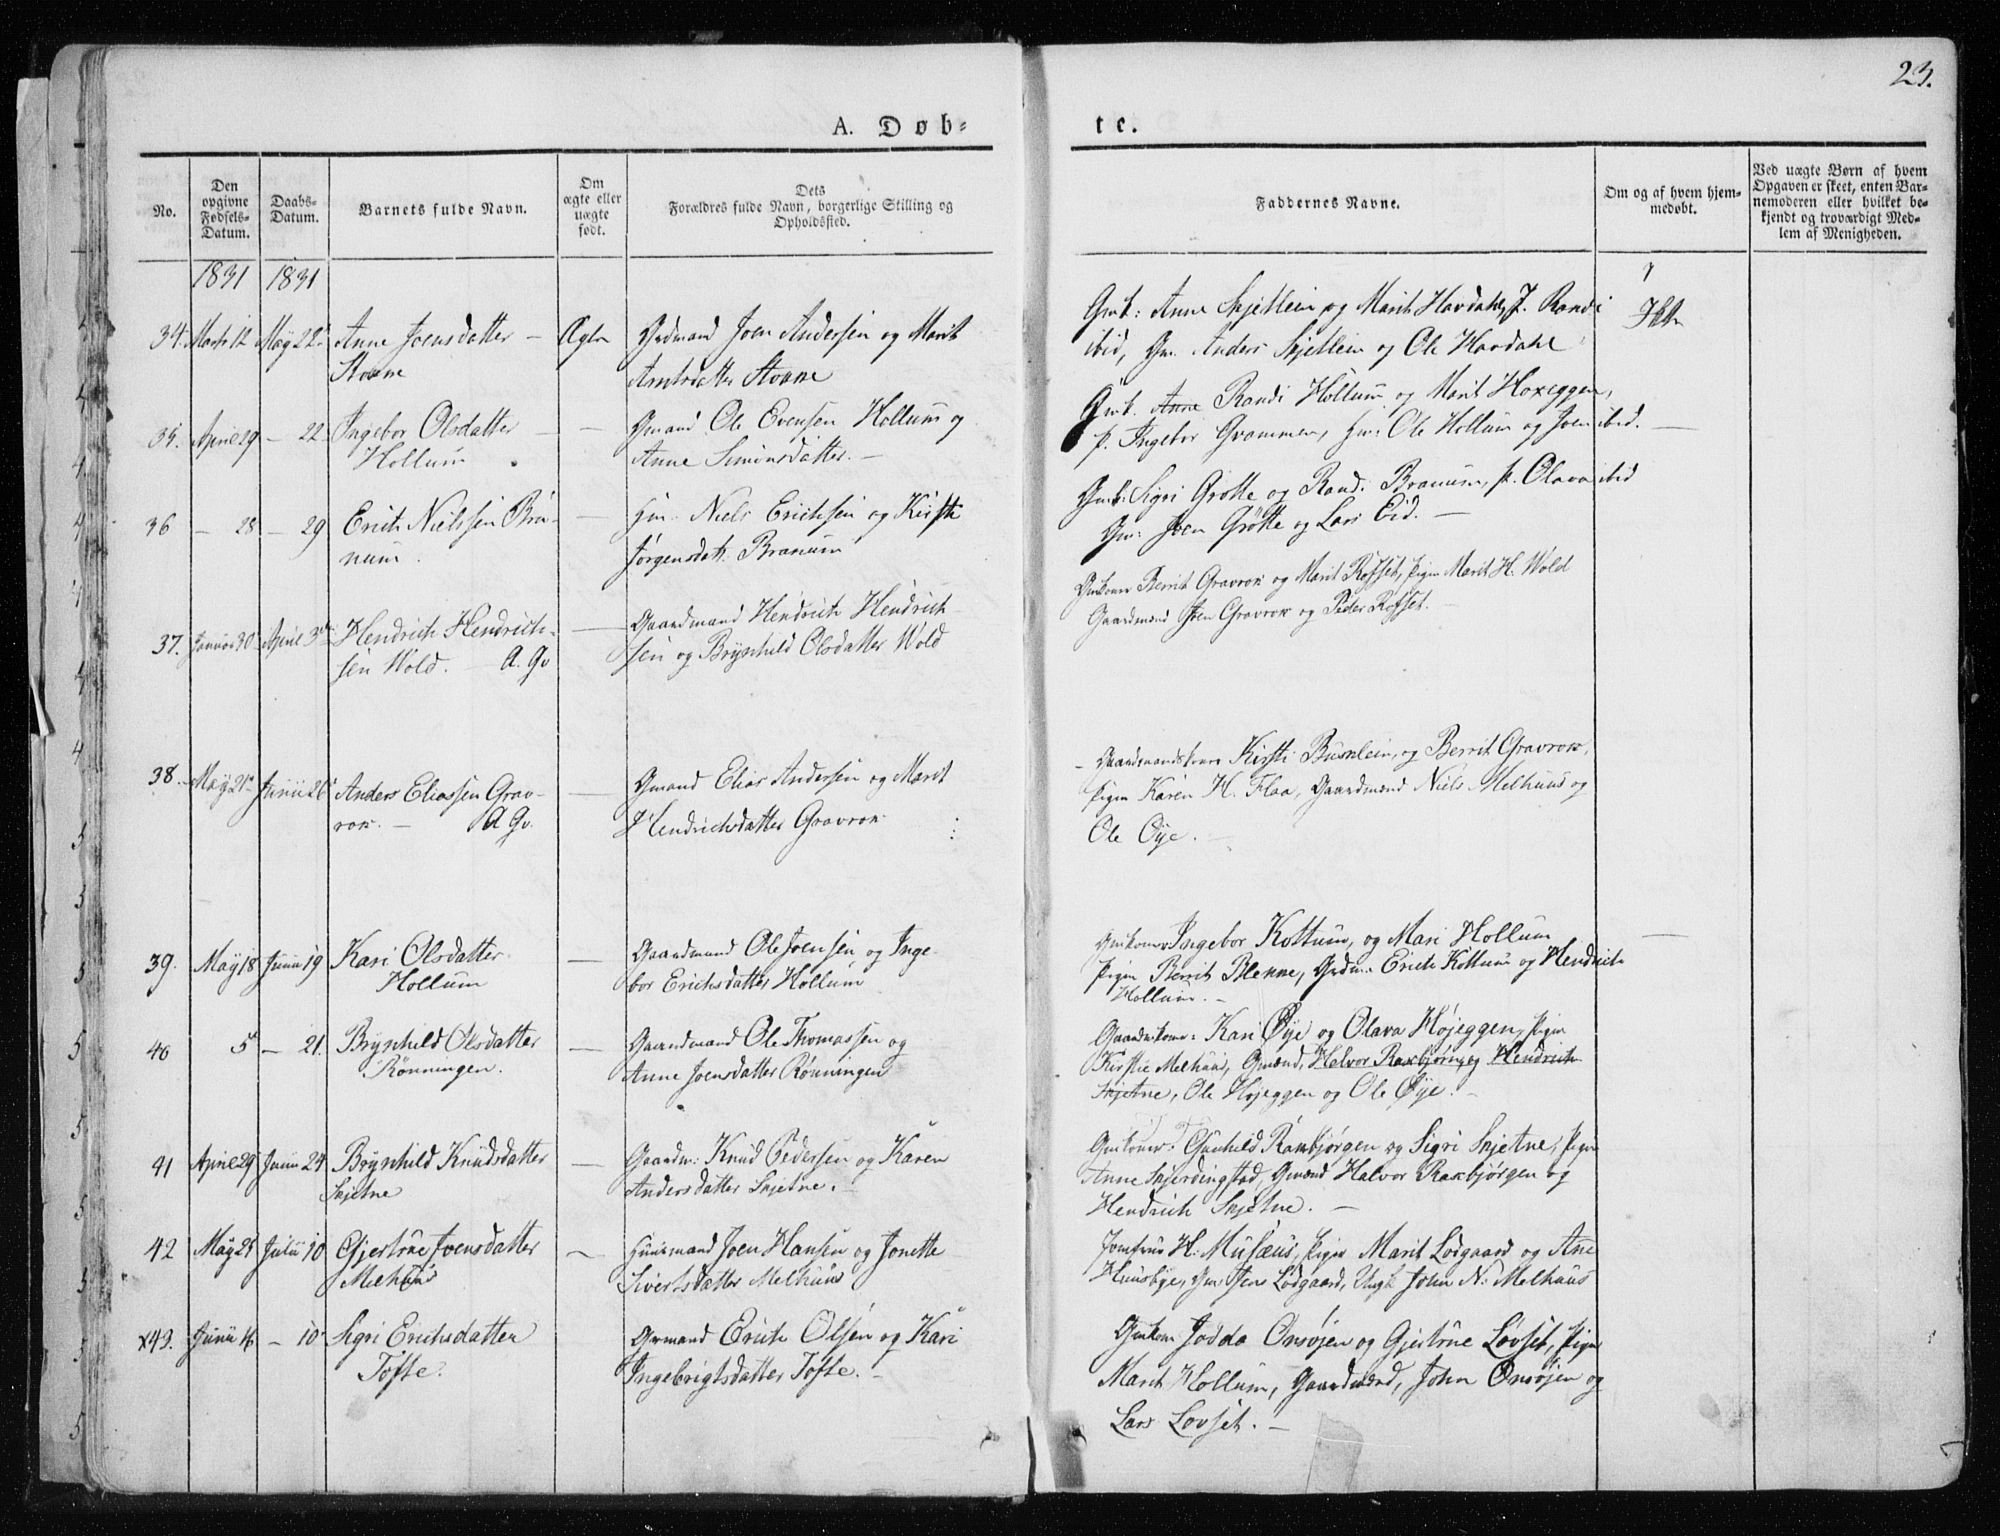 23.
A. Døb-
te.
No.
Den
opgivne
Fødsels-
Datum.
Daabs-
Datum.
Barnets fulde Navn.
Om
ægte eller
uægte
født.
Dets
Forældres fulde Navn, borgerlige Stilling og
Opholdssted.
Faddernes Navne.
Om og af hvem hjem-
medøbt.
Ved uægte Børn af hvem
Opgaven er skeet, enten Bar-
nemoderen eller hvilket be-
kjendt og troværdigt Med-
lem af Menigheden.
1831 1831
34. Marts 12 May 22 Anne Joensdatter — Ægte
Grdmand Joen Andersen og Marit
Arntsdatter
Gmk: Anne Skjetlein og Marit Havdahl, P. Randi
ibid, Gm. Anders Skjetlein og Ole Havdahl
35. April 29 — 22 Ingebor Olsdatter —
Hollum
Gmand Ole Evensen Hollum og
Anne Simonsdatter. —
Gmk. Anne Randi Hollum og Marit Hoxeggen,
p. Ingebor Grammen, Gm: Ole Hollum og Joen ibid. —
36 — 28 — 29 Erich Nielssen Bra-
num. —
Hm. Niels Erichsen og Kirsti
Jørgensdatr. Branum
Gmk: Sigri Grotte og Randi Branum, p. Olava ibid
Gm: Joen Grøtte og Lars Eid. —
37. Januar 30 April 3 Hendrich Hendrich-
sen Wold. — A. Gv
Gaardmand Hendrich Hendrich-
sen og Brynhild Olsdatter Wold
Gmkoner Berrit Gravrok og Marit Rofset, Pigen Marit H. Wold
Gaardmænd Joen Gravrok og Peder Rofset. —
38. — May 21 — Junii 26 Anders Eliassen Grav-
rok. — A Gv.
Gmand Elias Andersen og Marit
Hendrichsdatter Gravrok
— Gaardmandskoner Kirsti Busklein, og Berrit Gravrok,
Pigen Karen H. Flaa, Gaardmænd Niels Melhuus og
Ole Øye. —
39. May 18 Junii 19 Kari Olsdatter
Hollum —
Gaardmand Ole Joensen og Inge-
bor Erichsdatter Hollum
Gmkoner Ingebor Kottum, og Mari Hollum —
Pigen Berrit Blekne, Grdm. Erich Kottum og Hendrich
Hollum. —
40 5 — 21. Brynhild Olsdatter
Rönningen. —
Gaardmand Ole Thomassen og
Anne Joensdatter Rönningen
Gaardmkoner: Kari Øye og Olava Højeggen, Pigen
Kirstie Melhuus, Gmænd, Halvor Raxbjørn, og Hendrich
Skjetne, Ole Højeggen og Ole Øye. —
41 April 29 Junii 24 Brynhild Knudsdatter —
Skjetne
Gaardm: Knud Pedersen og Karen
Andersdatter Skjetne. —
Gmkoner: Gunhild Raxbjørgen og Sigri Skjetne, Pigen
Anne Skjerdingstad, Gmænd Halvor Raxbjørgen og
Hendrich Skjetne. —
42 May 21 Julii 10 Gjertrue Joensdatter —
Melhuus
Huusmand Joen Hansen og Jonette
Sivertsdatter Melhuus
Jomfrue H. Musæus, Piger Marit Lodgaard og Ane
Huusbye, Gm Jens Lodgaard, Ungk John N. Melhuus
x43. Junii 16 — 10 Sigri Erichsdatter
Tofte.
Grmand Erich Olsen og Kari
Ingebrigtsdatter Tofte. —
Gmkon Jodda Onsøjen og Gjertrue Lovset, Pigen
Marit Hollum, Gaardmænd, John Onsøjen og
Lars Lovset. —